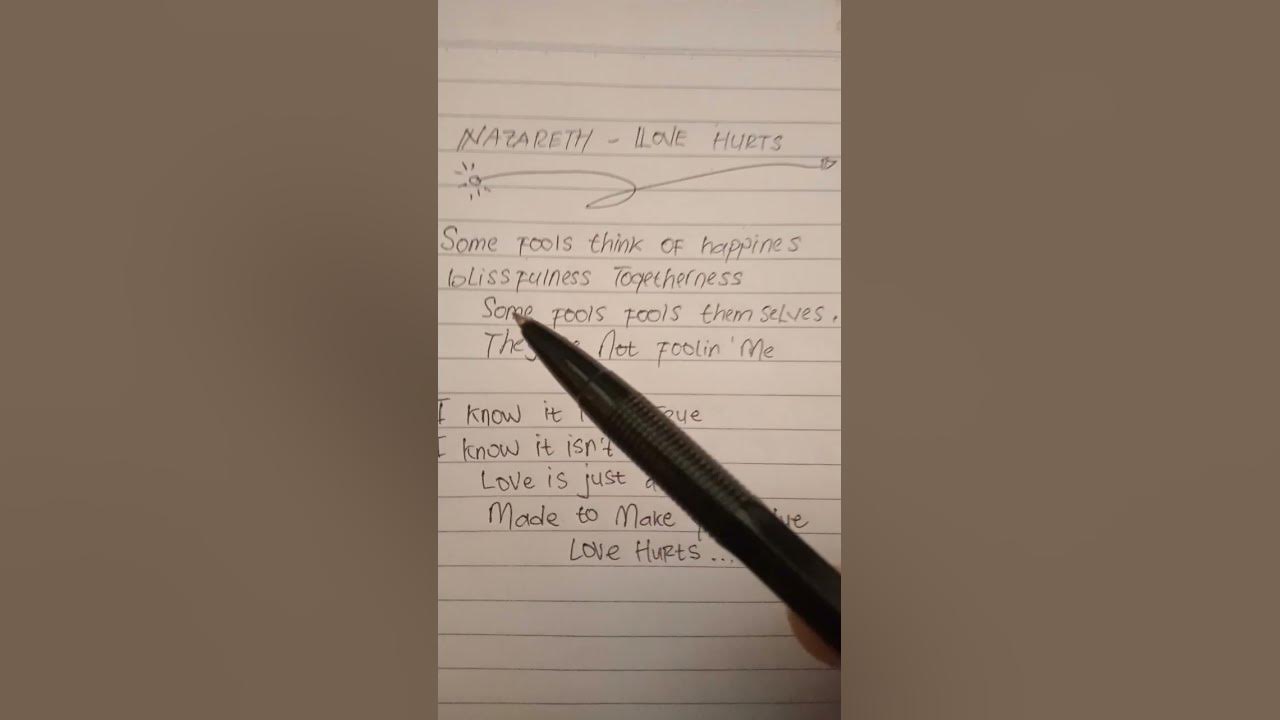 NAZARETH - LOVE HURTS
Some fools think of happines
blissfulness Togetherness
Some fools fools themselves.
Not foolin' Me
I know it True
I know it isn't
Love is just a
Made to Make
Love Hurts ...